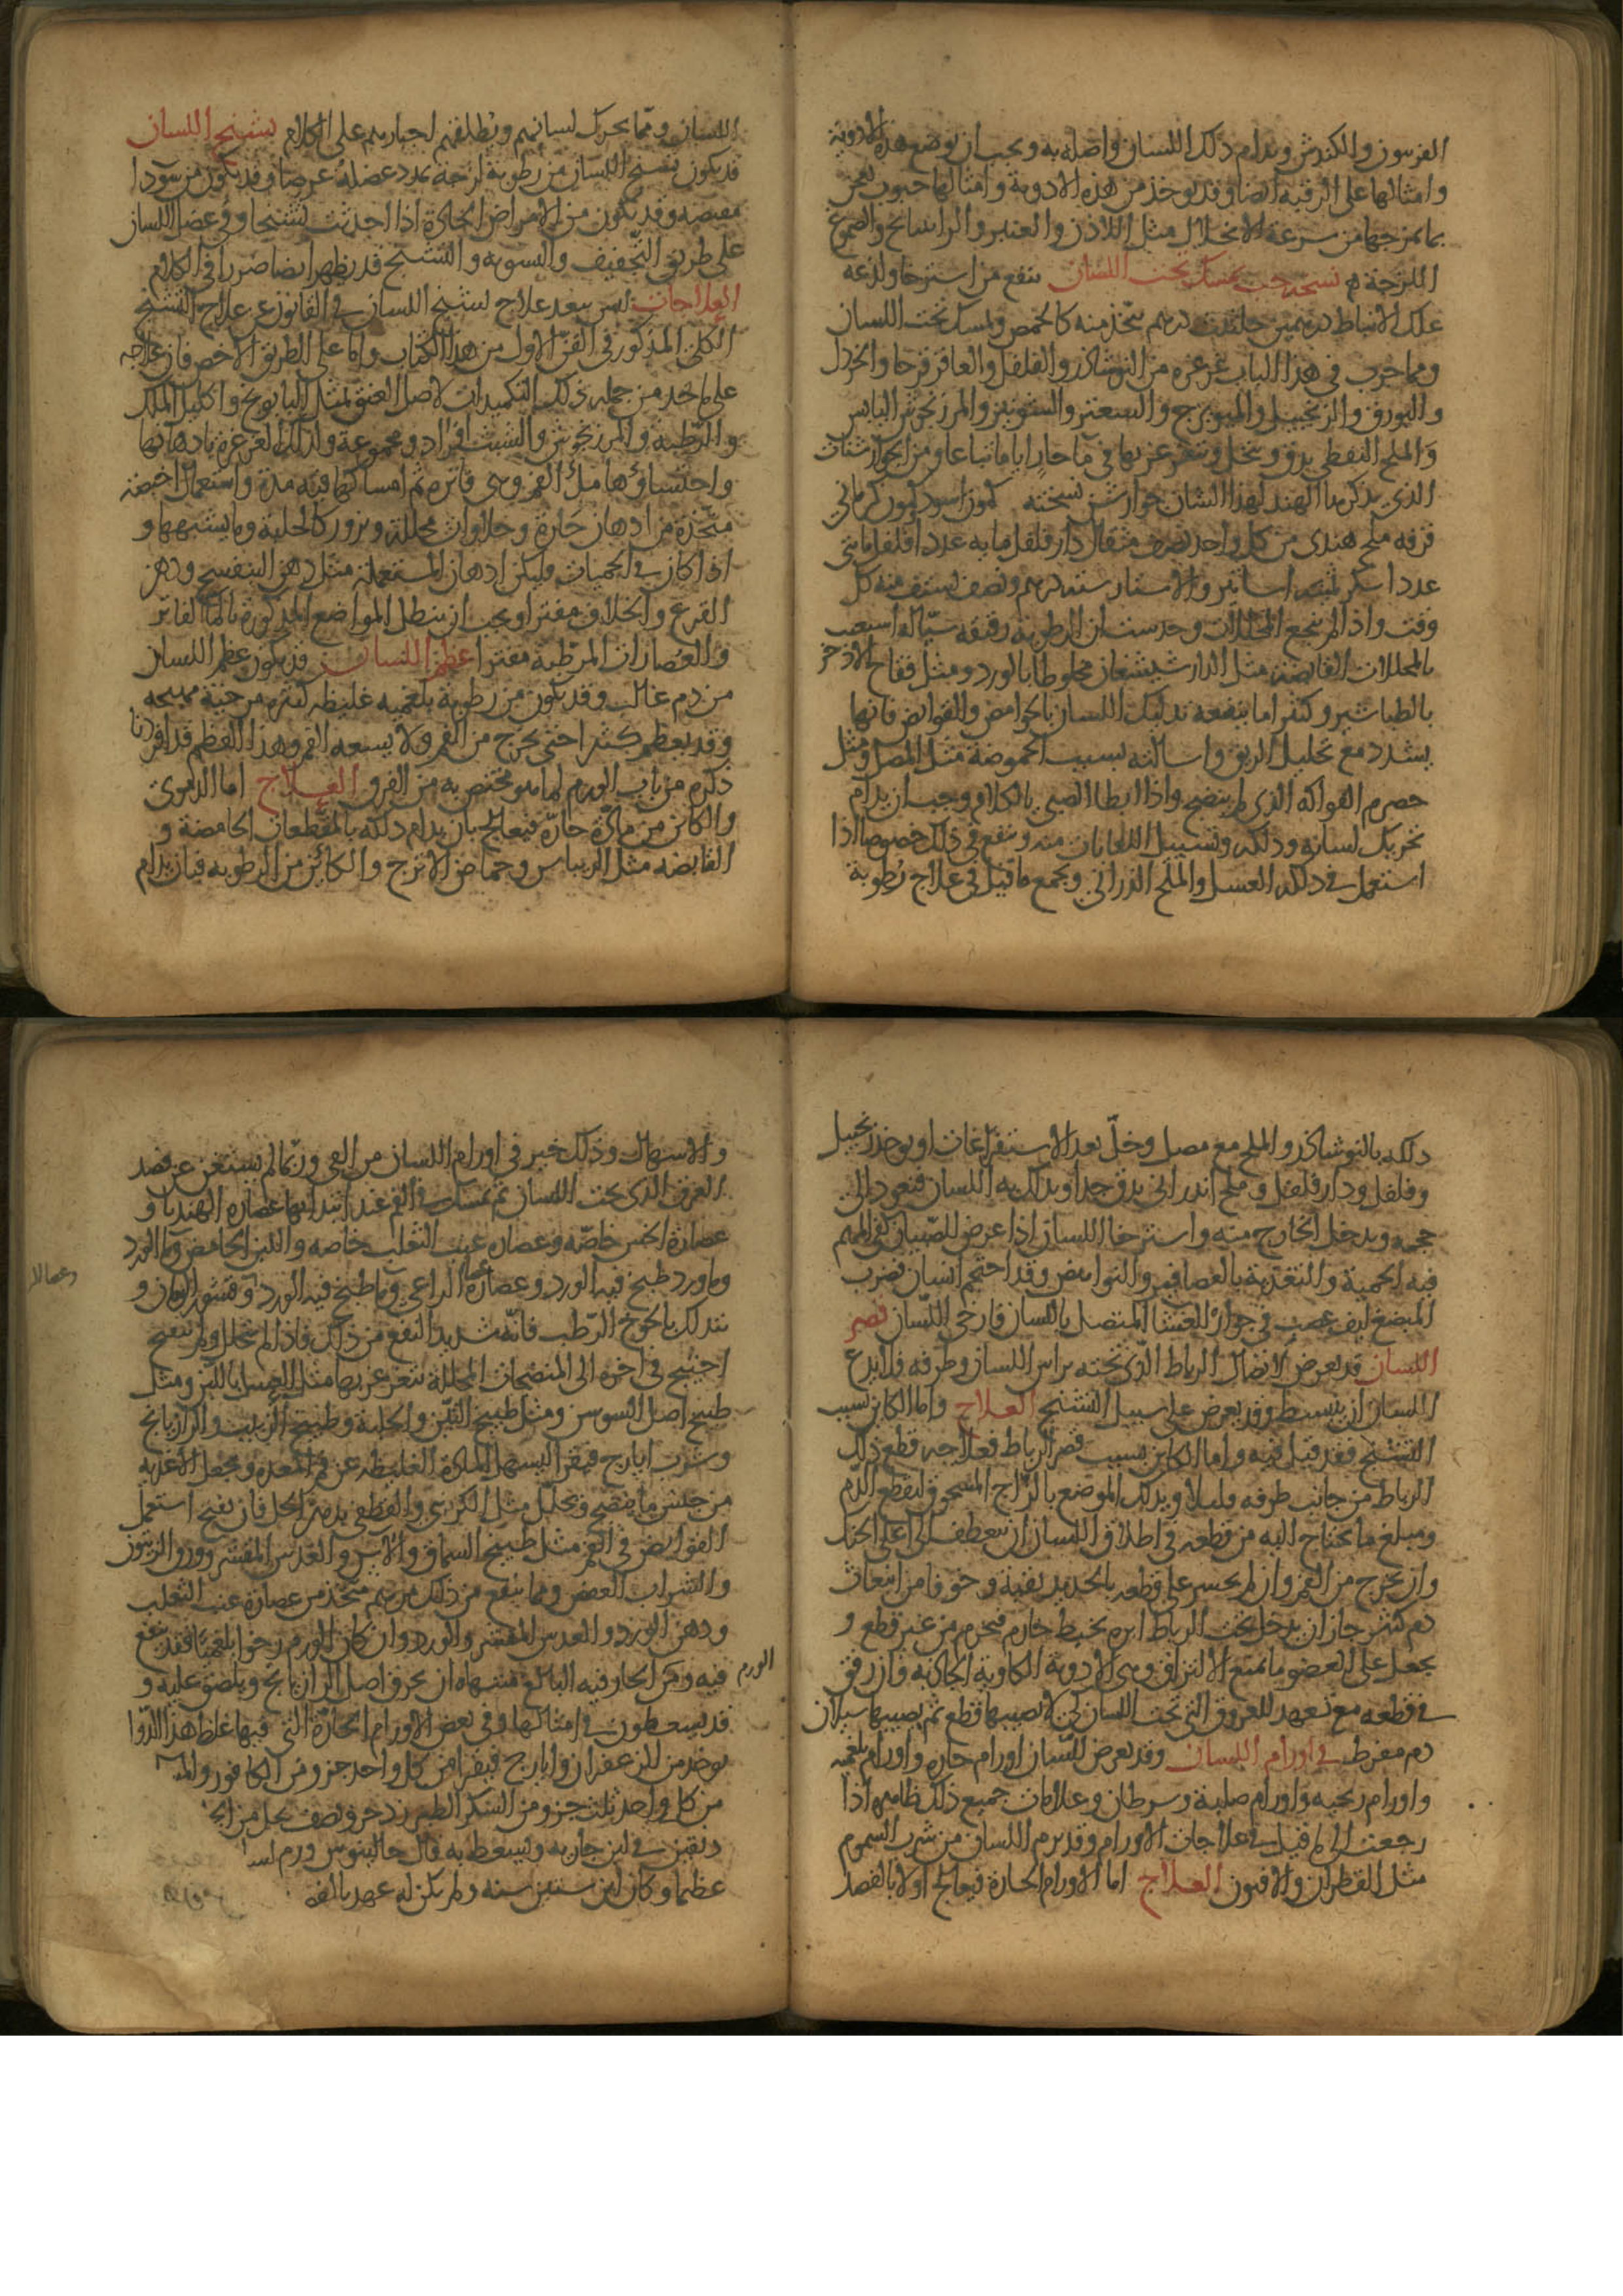 الفربيون والكندش ويدام دلك اللسان واصله به ويجب ان توضع هذه الادوية
وامثالها على الرقبة ايضا وقد يوخذ من هذه الادوية وامثالها حبوب
بما يمزجها من سرعة الانحلال مثل اللاذن والعنبر والراتيانج والصموغ
اللزجة نسخة حب يمسك تحت اللسان ينفع من استرخاء ولذعه
علك الانباط درهمين حلتيت درهم يتخذ منه كالحمص ويمسك تحت اللسان
ومما جرب في هذا الباب غرغرة من النوشاذر والفلفل والعاقرقرحا والخردل
والبورق والزنجبيل والميويزج والسعتر والشونيز والمرزنجوش اليابس
والملح النفطي يدق وينخل ويتغرغر بها في ما حار اياما تباعا ومن الجوارشنات
الذي يذكرها الهند لهذا الشان جوارشن نسخته كمون اسود كمون كرماني
قرفه ملح هندي من كل واحد نصف مثقال دار فلفل مايه عددا فلفل مايتي
عددا سكر ثمنيه اساتير والاستار ستة درهم ونصف يستف منه كل
وقت واذا لم ينجع المحللات وحدست ان الرطوبة رقيقه سيالة استعنت
بالمحللات القابضة مثل الدارشيشغان مخلوطا بالورد ومثل فقاح الاذخر
بالطباشير وكثيرا ما ينفعه تدليك اللسان بالحوامض والقوابض فانها
يشدد مع تحليل الريق واسالته بسبب الحموضة مثل المصل ومثل
حصرم الفواكه الذي لم ينضج واذا ابطا الصبي بالكلام وجب ان يدام
تحريك لسانه ودلكه وتسييل اللعابات منه وينفع في ذلك خصوصا اذا
استعمل في دلكه العسل والملح الدراني ويجمع ما قيل في علاج رطوبة
اللسان ومما يحرك لسانهم ويطلقهم اجبارهم على الكلام تشنج اللسان
قد يكون تشنج اللسان من رطوبة لزجة تمدد عضله عرضا وقد يكون من سودا
مقبضه وقد يكون من الامراض الحادة اذا احدثت تشنجا وفي عضل اللسان
على طريق التجفيف والتشويه والتشنج قد يظهر ايضا ضررا في الكلام
العلاجات ليس يبعد علاج تشنج اللسان في القانون عن علاج التشنج
الكلي المذكور في الفن الاول من هذا الكتاب واما على الطريق الاخص فان علاجه
على ما خد من جمله ذلك التكميدات لاصل العنق بمثل البابونج واكليل الملك
والرطبه والمرزنجوش والشبث افرادا ومجموعة وكذلك الغرغرة بادهانها
واحتساؤها ملأ الفم وهي فاتره ثم امساكها فيه مدة واستعمال اخبصه
متخذة من ادهان حارة وحلاوات محللة وبزور كالحلبة وما يشبهها و
اذا كان في الحميات فليكن ادهان المستعملة مثل دهن البنفسج ودهن
القرع والخلاف مفترا ويجب ان ينطل المواضع المذكورة بالما الفاتر
والعصارات المرطبة مفترا عظم اللسان قد يكون عظم اللسان
من دم غالب وقد يكون من رطوبة بلغميه غليظه كثيره مرخية مهيجه
وقد يعظم كثيرا حتى يخرج من الفم ولا يسعه الفم وهذا العظم قد افردنا
ذكره من باب الورم لما هو مختص به من الفرو العلاج اما الدموي
والكاين من مادة حارة فيعالج بان يدام دلكه بالمقطعات الحامضة و
القابضه مثل الريباس وحماض الاترج والكائن من الرطوبه فبان يدام
دلكه بالنوشاذر والملح مع مصل وخل بعد الاستفراغات او يوخذ زنجبيل
وفلفل ودار فلفل وملح اندراني يدق جدا ويدلك به اللسان فيعود الى
حجمه ويدخل الخارج منه واسترخا اللسان اذا عرض للصبيان كفى المهم
فيه الحمية والتغذية بالعصافير والنواهض وقد احتجم انسان فضرب
المبضع ليف عصب في جوار للغشا المتصل باللسان فارخى اللسان قصر
اللسان قد يعرض لاتصال الرباط الذي تحته براس اللسان وطرفه فلا يدع
اللسان ان ينبسط وقد يعرض على سبيل التشنج العلاج واما الكاين بسبب
التشنج فقد قيل فيه واما الكاين بسبب قصر الرباط فعلاجه قطع ذلك
الرباط من جانب طرفه قليلا ويدلك الموضع بالزاج المسحوق ليقطع الدم
ومبلغ ما يحتاج اليه من قطعه في اطلاق اللسان ان ينعطف الى اعلى الحنك
وان يخرج من الفم وان لم يجسر على قطعه بالحديد تقية وخوفا من انبعاث
دم كثير جاز ان يدخل تحت الرباط ابره بخيط خارم فيخرم من غير قطع و
يجعل على العضو ما يمنع الالتزاق وهي الادوية الكاوية الحادة وان رفق
في قطعه مع تعهد للعروق التي تحت اللسان كي لا يصيبها قطع ثم يصيبها سيلان
دم مفرط في اورام اللسان وقد يعرض للسان اورام حاره واورام بلغميه
واورام ريحيه واورام صلبة وسرطان وعلامات جميع ذلك ظاهره اذا
رجعت الى ما قيل في علاجات الاورام وقد يرم اللسان من شرب السموم
مثل الفطران والافيون العلاج اما الاورام الحارة فيعالج اولا بالفصد
والاسهال وذلك خير في اورام اللسان من القي وربما لم يستغن عن فصد
العرق الذي تحت اللسان ثم يمسك في الفم عند ابتدائها عصارة الهندبا و
عصارة الخس خاصة وعصاره عنب الثعلب خاصه واللبن الحامض وما الورد
وما ورد طبخ فيه الورد وعصارة عصا الراعي وما طبخ فيه الورد وقشور الرمان و
يتدلك بالخوخ الرطب فانه شديد النفع من ذلك فاذا لم يتحلل ولم ينفتح
احتيج في اخره الى المنضجات المحللة يتغرغر بها مثل العسل باللبن ومثل
طبيخ اصل السوس ومثل طبيخ التين والحلبة وطبيخ الزبيب والرازيانج
وشرب ايارج فيقرا ليسهل المادة الغليظه عن فم المعده ويجعل الاغذيه
من جنس ما ينضج ويحلل مثل الكرنب والقطف بدهن الخل فان نضج استعمل
القوابض في الفم مثل طبيخ السماق والاس والعدس المقشر وورق الزيتون
والشراب العفص ومما ينفع من ذلك مرهم متخذ من عصارة عنب الثعلب
ودهن الورد والعدس المقشر والورد وان كان الورم رخوا بلغميا فقد ينفع
الورم
فيه وفي الحار فيه البالغ منتهاه ان يحرق اصل الرازيانج ويلصق عليه و
قد يسعطون في امثالها وفي بعض الاورام الحارة التي فيها غلظ هذا الدوا
يوخذ من الزعفران وايارج فيقرا من كل واحد جزو ومن الكافور
من كل واحد ثلث جزو ومن السكر الطبرزد جزو ونصف يحل من
دنقين في لبن جارية ويسعط به قال جالينوس ورم
عظيما وكان ابن ستين سنه ولم يكن له عهد بالفه